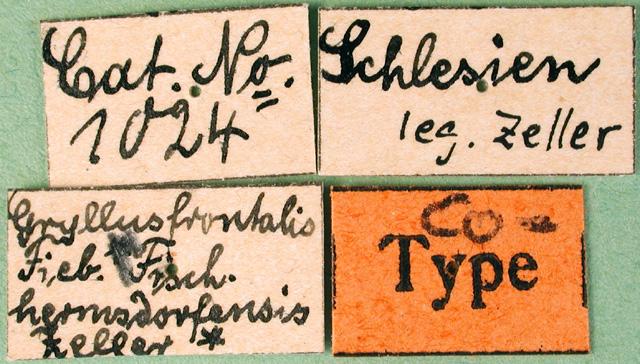 Cat. No.
1024
Schlesien
leg. Zeller
Gryllus frontalis
Fieb. Fisch.
hermsdorfensis
Zeller *
Co-
Type